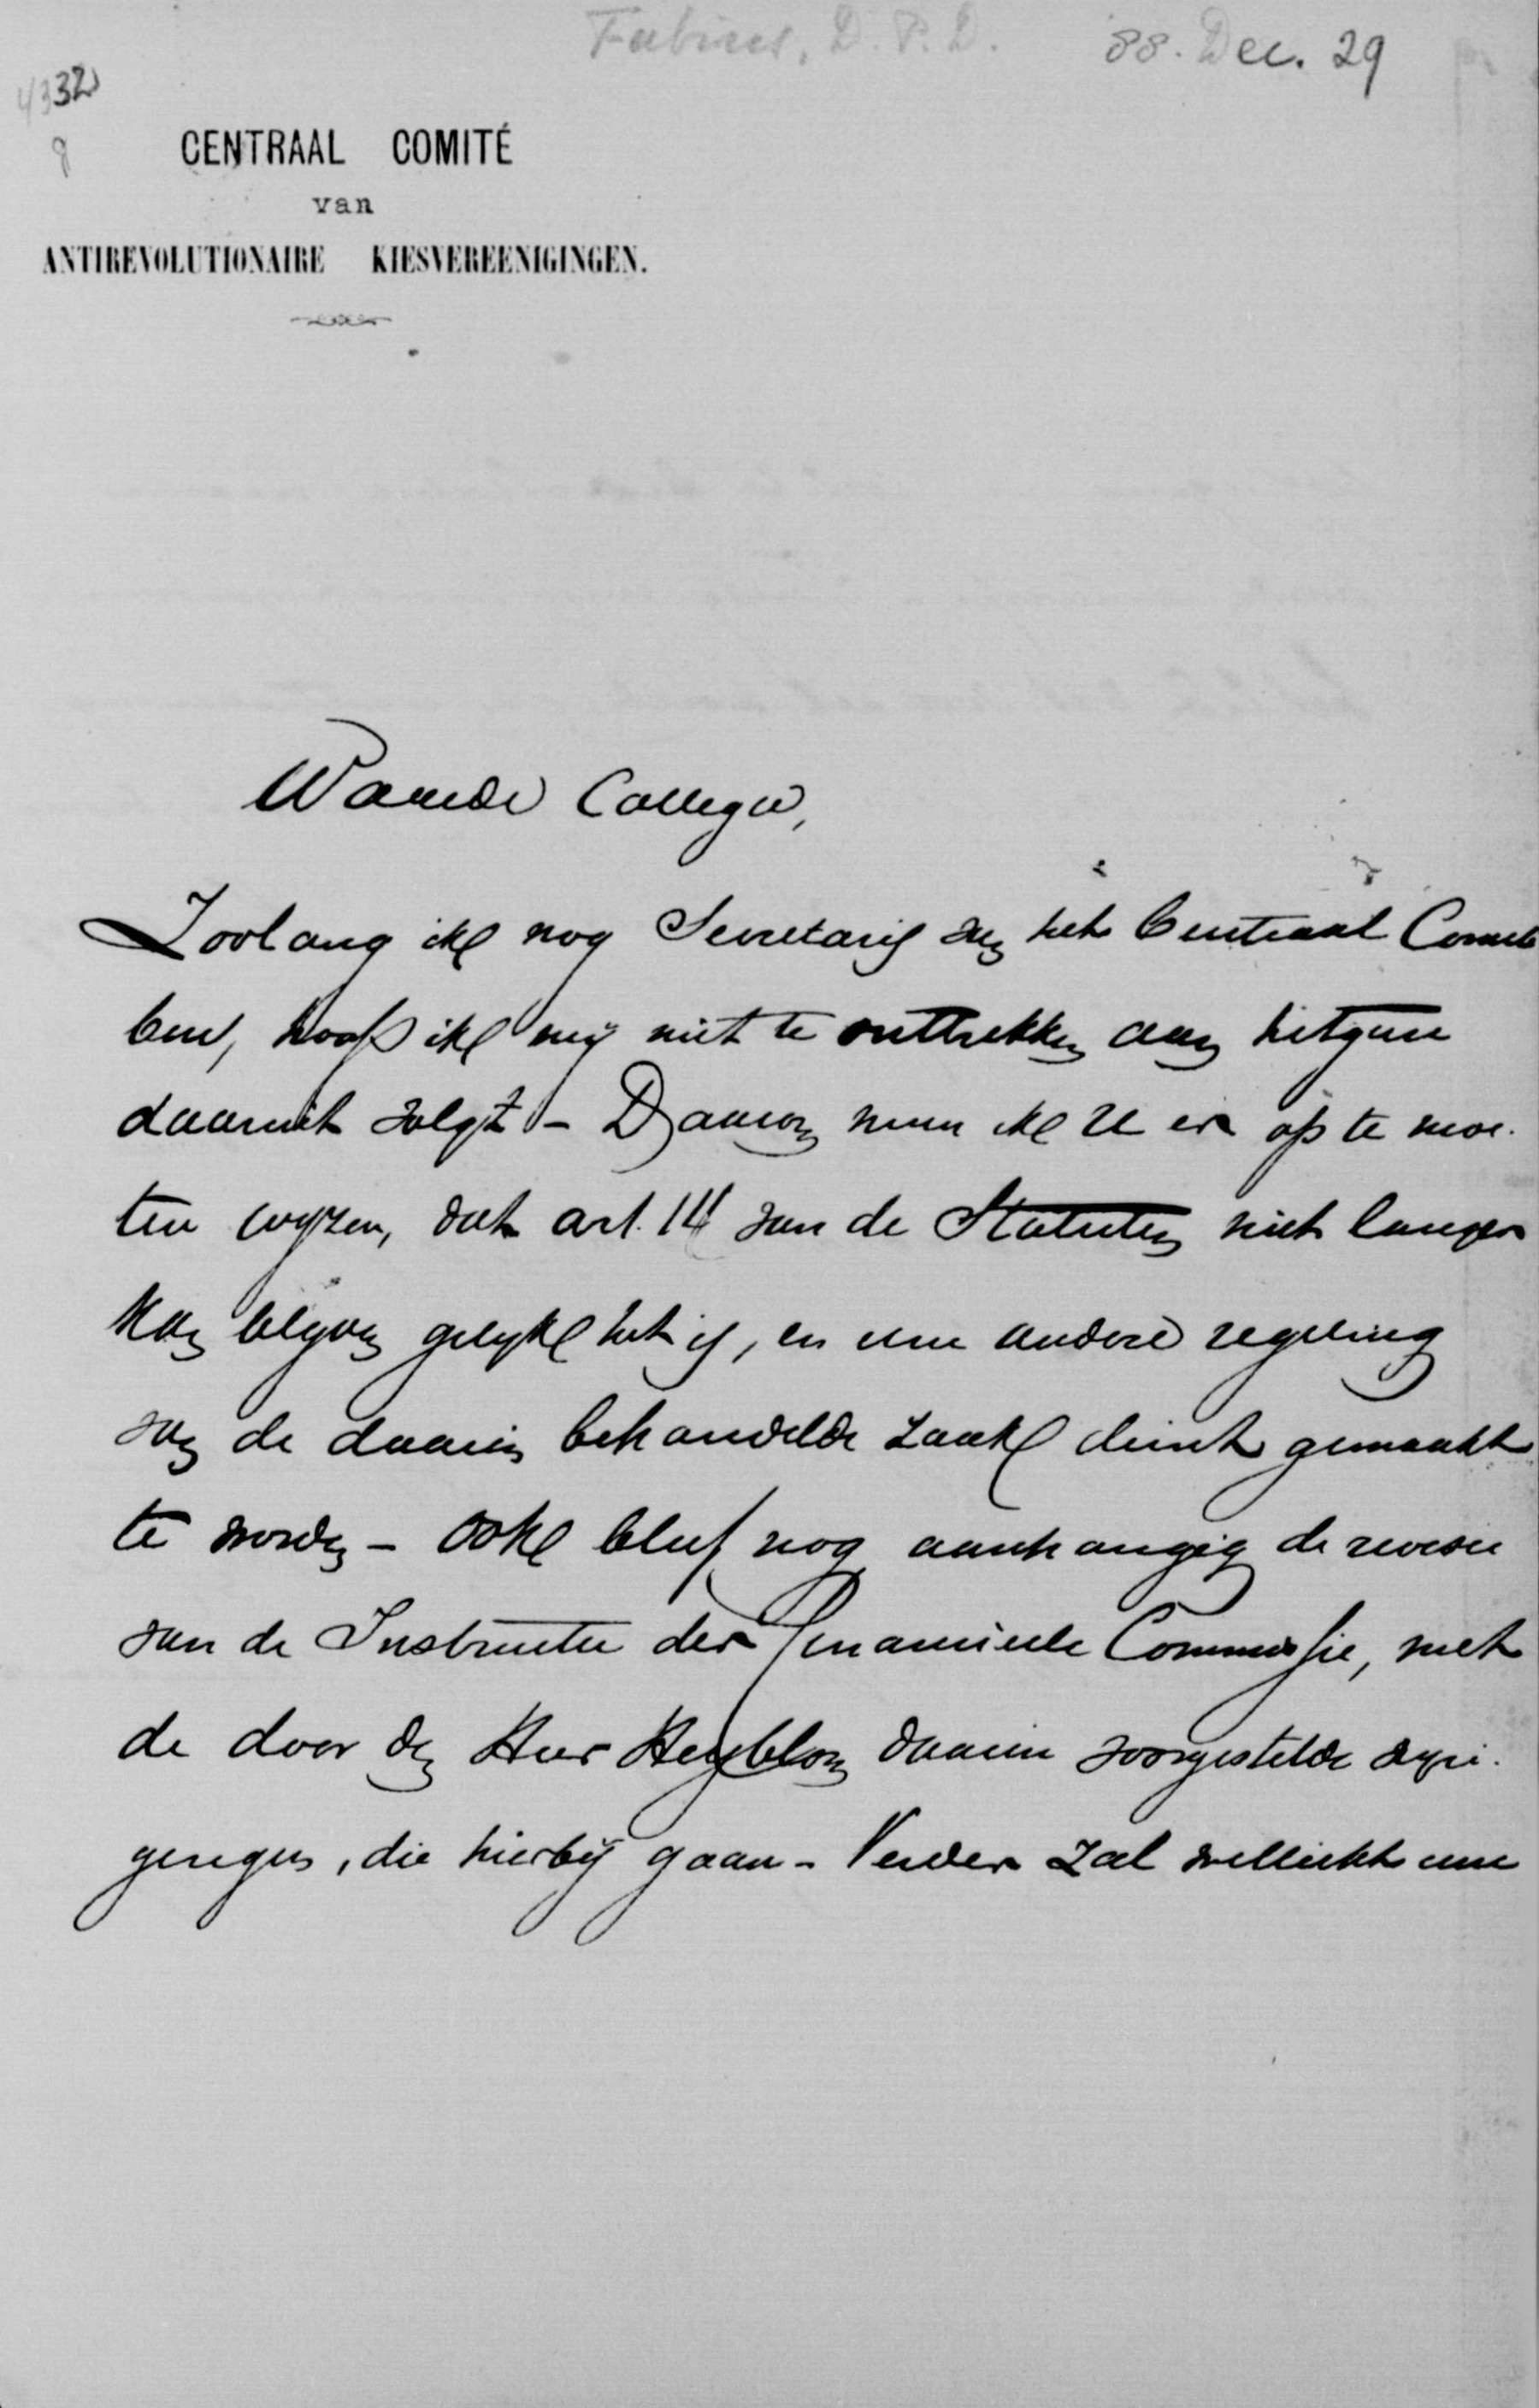 Fabius, D. P. D. 88. Dec. 29
4332
8
CENTRAAL COMITÉ
van
ANTIREVOLUTIONAIRE KIESVEREENIGINGEN.
Waarde Collega,
Zoolang ik nog Secretaris van het Centraal Comité
ben, hoop ik mij niet te onttrekken aan hetgeen
daaruit volgt - Daarom meen ik U er op te moe-
ten wijzen, dat art. 14 van de Statuten niet langer
kan blijven gelijk het is, en eene andere regeling
van de daarin behandelde zaak dient gemaakt
te worden - Ook bleef nog aanhangig de revisie
van de Instructie der financieele Commissie, met
de door den Heer Heyblom daarin voorgestelde wijzi-
gingen, die hierbij gaan - Verder zal wellicht eene